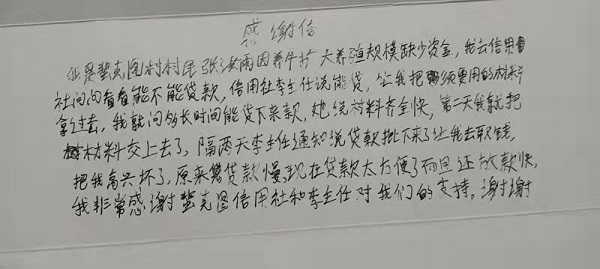 感谢信
业畏堃克图村村民张海雨因养牛扩大养殖规模缺少资金,我去信用
社问问看看能不能贷款,信用社李主任说能贷,让我把须要用的材料
拿过去,我就问多长时间能贷下来款,她说材料齐全快,第二天我就把
材料交上去了,隔两天李主任通知说贷款批下来了让我去取钱,
把我高兴坏了,原来贷款慢,现在贷款太方便了而且还放款快,
我非常感谢堃克图信用社和李主任对我们的支持。谢谢